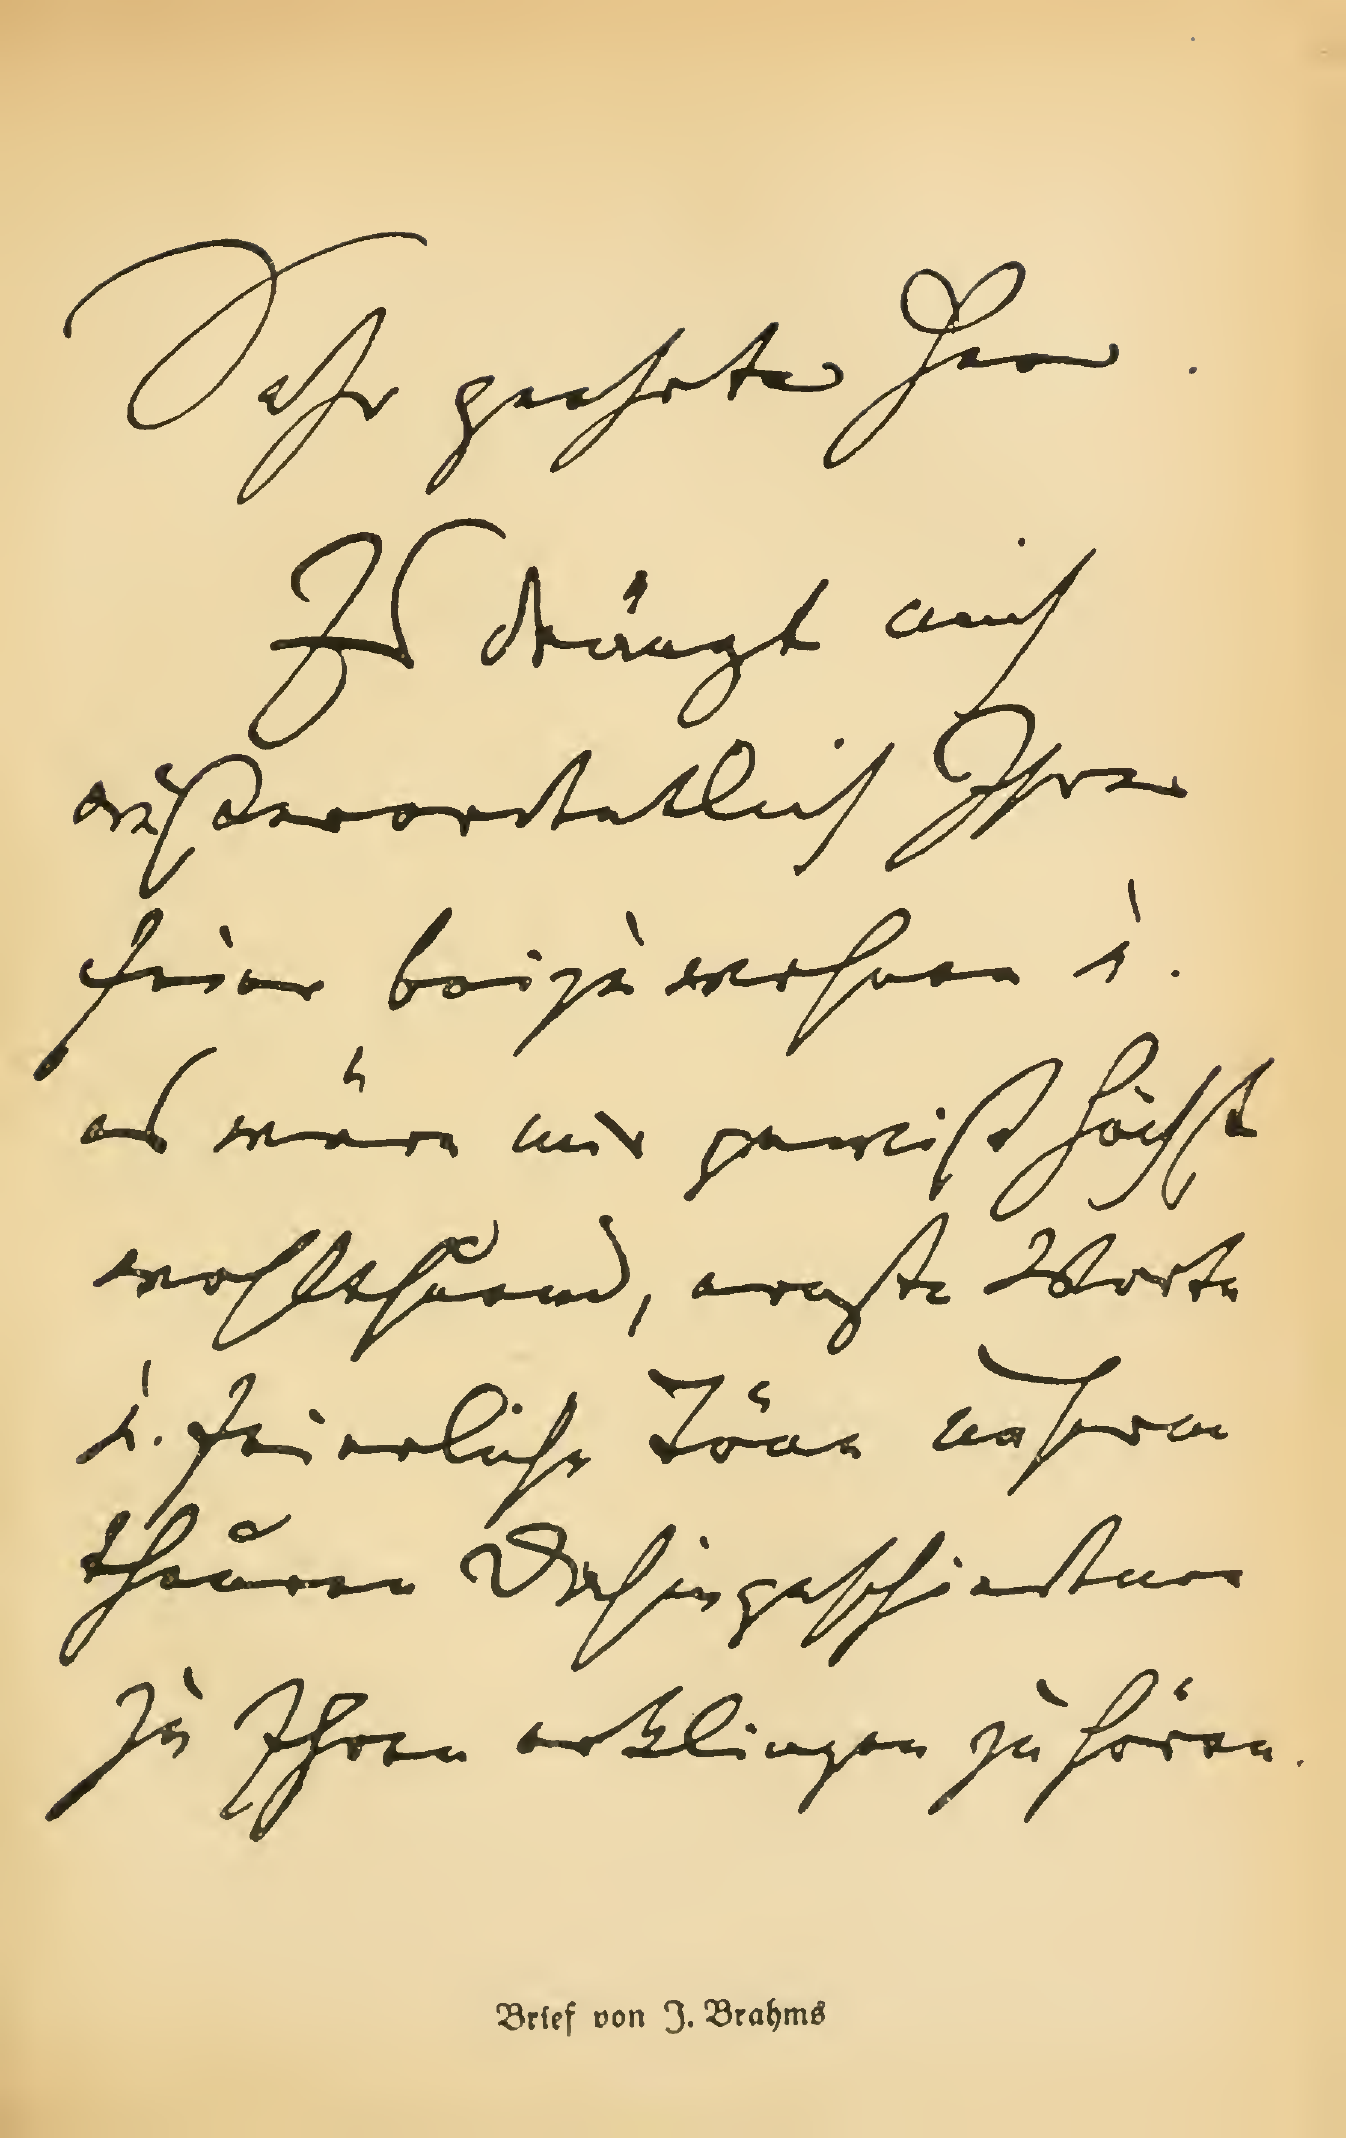 Sehr geehrter Herr
Es drängt mich
außerordentlich Ihrer
Feier beizuwohnen u.
es wäre mir gewiß höchst
wohlthuend, ernste Worte
u. feierliche Töne unserm
theuren Dahingeschiedenen
zu Ehren erklingen zu hören.
Brief von J. Brahms